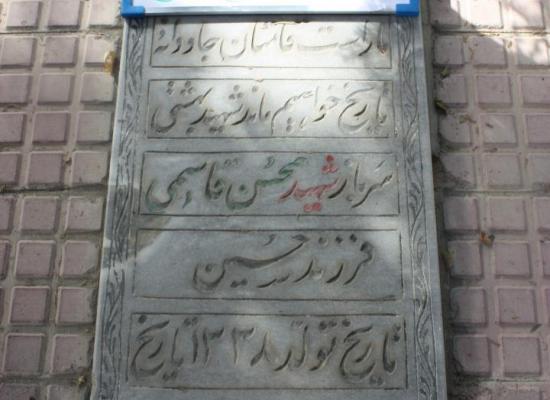 ما راست قامتان جاودانه
تاریخ خواهیم ماند شهید بهشتی
سرباز شهید محسن قاسمی
فرزند حسین
تاریخ تولد ۱۳۳۸ تاریخ